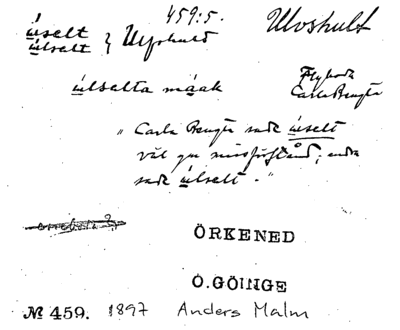 459:5.
úselt
úlselt } Ulfshult Uloshult
úlselta máak
Flyboda
Carla Bengta
"Carla Bengta sade úselt
väl gm missförstånd; andra
sade úlselt."
ÖRKENED
Ö. GÖINGE
№ 459. 1897 Anders Malm